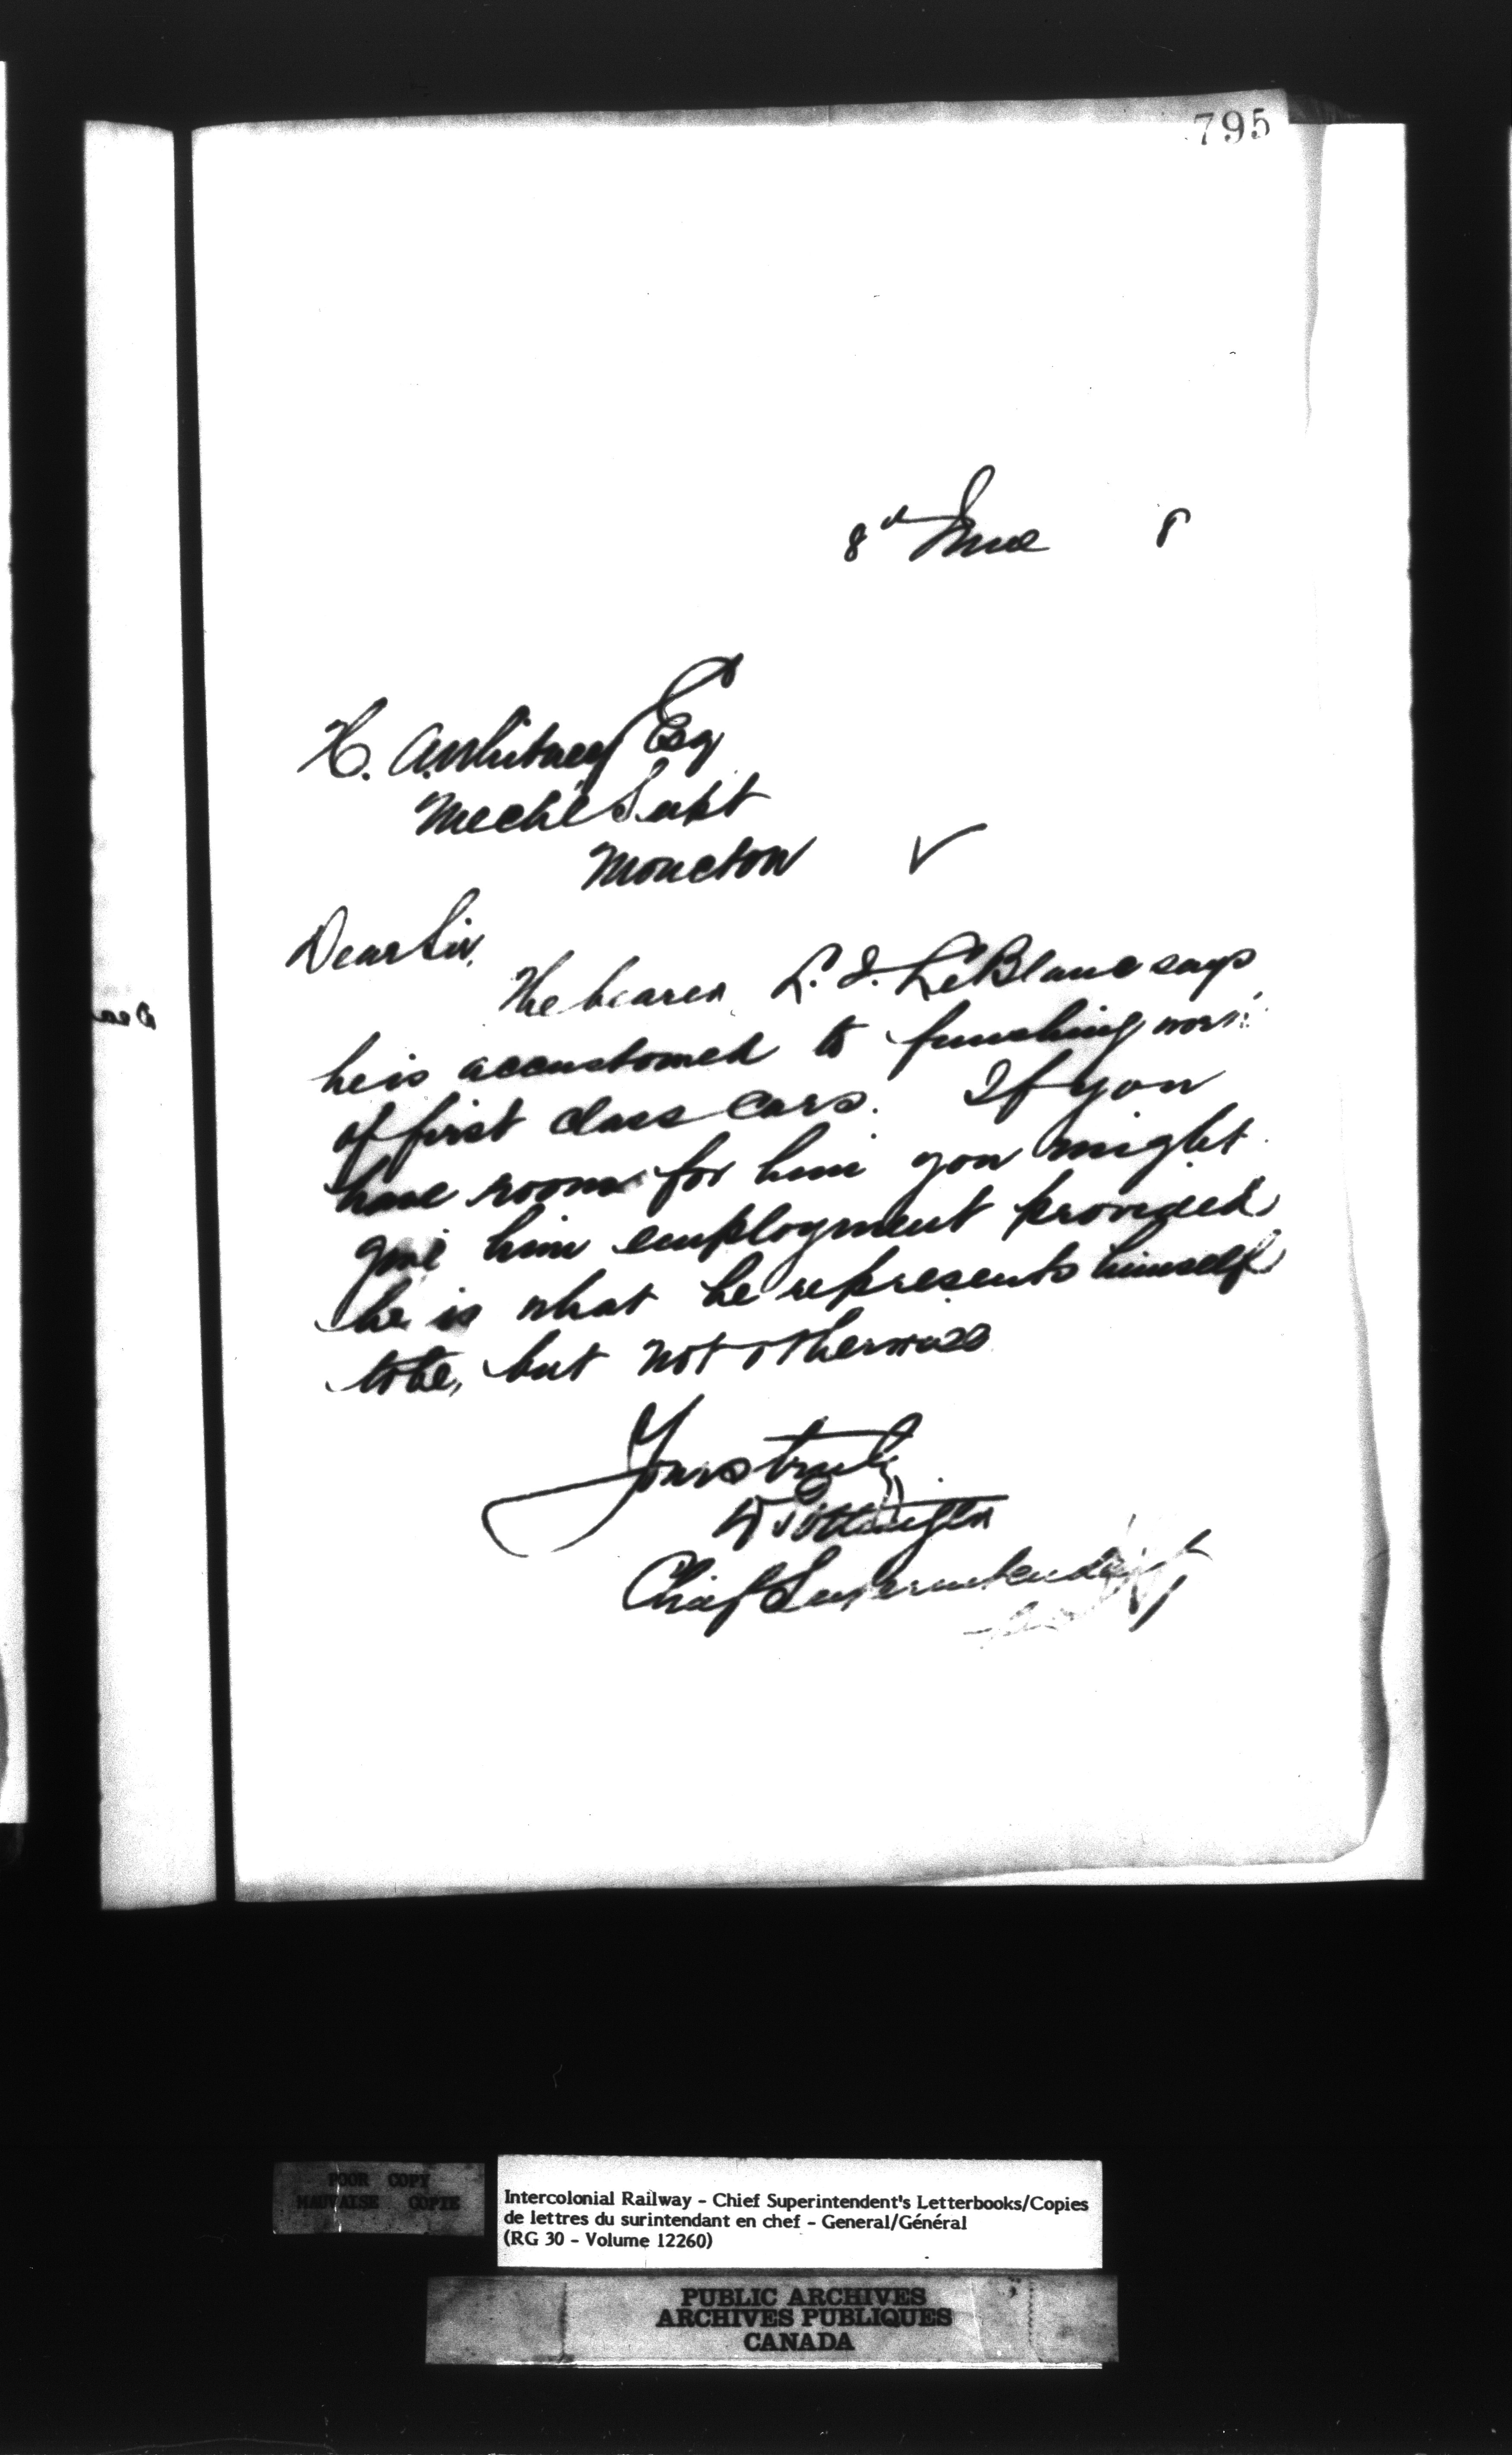 795
8th June 8
H. A. Whitney Esq
Mechl Supt
Moncton
Dear Sir.
The bearer L. J. LeBlanc says
he is accustomed to
of first class cars. If you
have room for him you might
give him employment provided
he is what he represents himself
to be, but not otherwise
Yours truly
D Pottinger
Chief Superintendent
Dea
POOR COPY
MAUVAISE COPIE
Intercolonial Railway - Chief Superintendent's Letterbooks/Copies
de lettres du surintendant en chef - General/Général
(RG 30 - Volume 12260)
PUBLIC ARCHIVES
ARCHIVES PUBLIQUES
CANADA